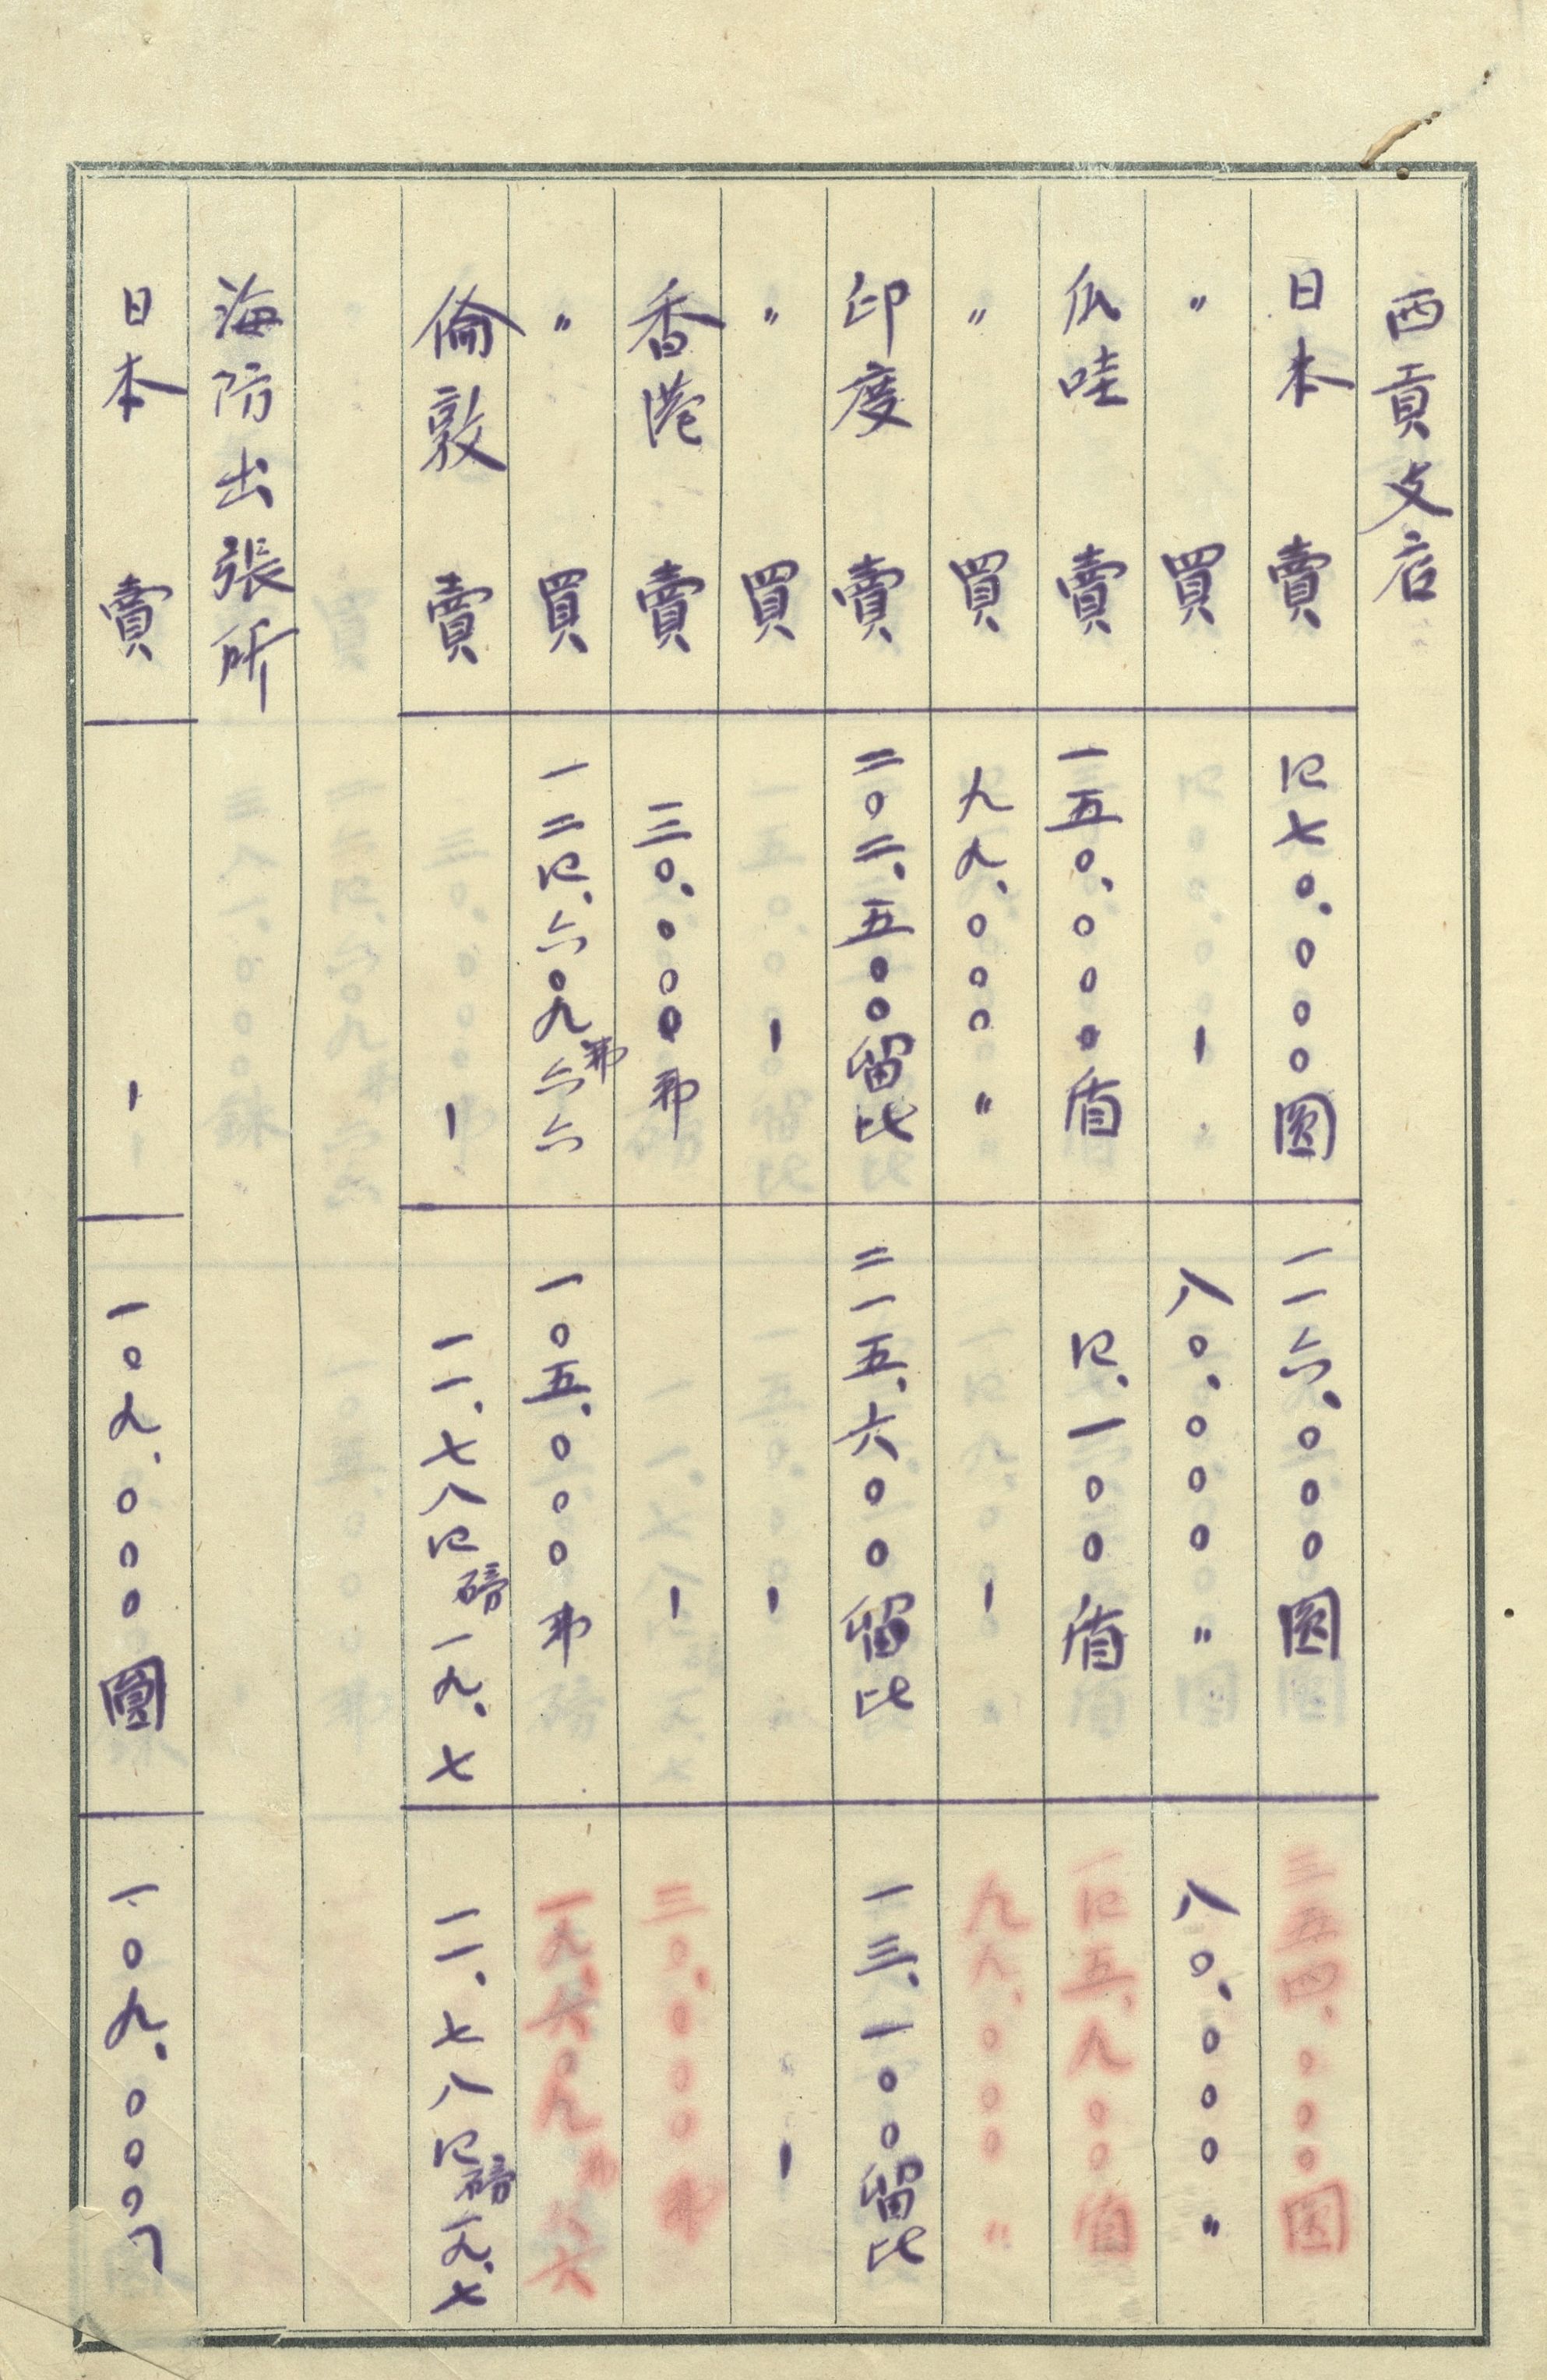 西貢支店
日本 賣 四七〇、〇〇〇圓 一一六、〇〇〇圓 三五四、〇〇〇圓
〃 買 ー 八〇、〇〇〇〃 八〇、〇〇〇〃
瓜哇 賣 一五〇、〇〇〇盾 四、一〇〇盾 一四五、九〇〇盾
〃 買 九九、〇〇〇〃 ー 九九、〇〇〇〃
印度 賣 二〇二、五〇〇留比 二一五、六〇〇留比 一三、一〇〇留比
〃 買 ー ー ー
香港 賣 三〇、〇〇〇弗 ー 三〇、〇〇〇弗
〃 買 一二四、六〇九弗六六 一〇五、〇〇〇弗 一九、六〇九弗六六
倫敦 賣 ー 一一、七八四磅一九、七 一一、七八四磅一九、七
海防出張所
日本 賣 ー 一〇九、〇〇〇圓 一〇九、〇〇〇